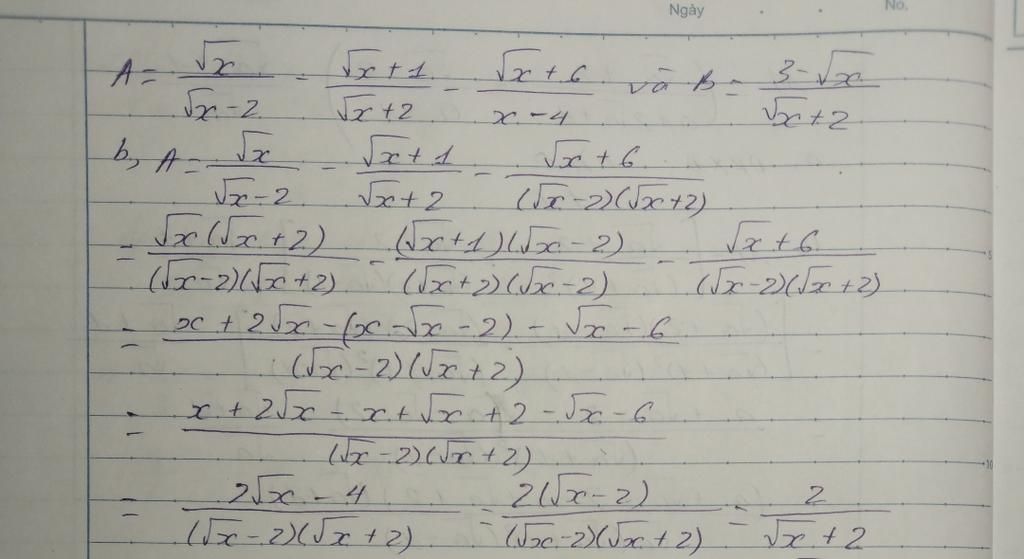 Ngày No.
A = √x/(√x-2) - (√x+1)/(√x+2) - (√x+6)/(x-4) và B = (3-√x)/(√x+2)
b, A = √x/(√x-2) - (√x+1)/(√x+2) - (√x+6)/((√x-2)(√x+2))
= √x(√x+2)/((√x-2)(√x+2)) - (√x+1)(√x-2)/((√x+2)(√x-2)) - (√x+6)/((√x-2)(√x+2))
= (x+2√x-(x-√x-2)-√x-6)/((√x-2)(√x+2))
= (x+2√x-x+√x+2-√x-6)/((√x-2)(√x+2))
= (2√x-4)/((√x-2)(√x+2)) = 2(√x-2)/((√x-2)(√x+2)) = 2/(√x+2)